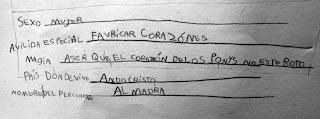 SEXO MUJER
AVILIDA ESPECIAL FAVRICAR CORAZÓNES
MAGIA ASER QUE EL CORAZÓN DE LOS PONYS NO ESTE ROTO
PAÍS DONDE VIVE ANDACRISTO
NOMBRE DEL PERSONA ALMADRA